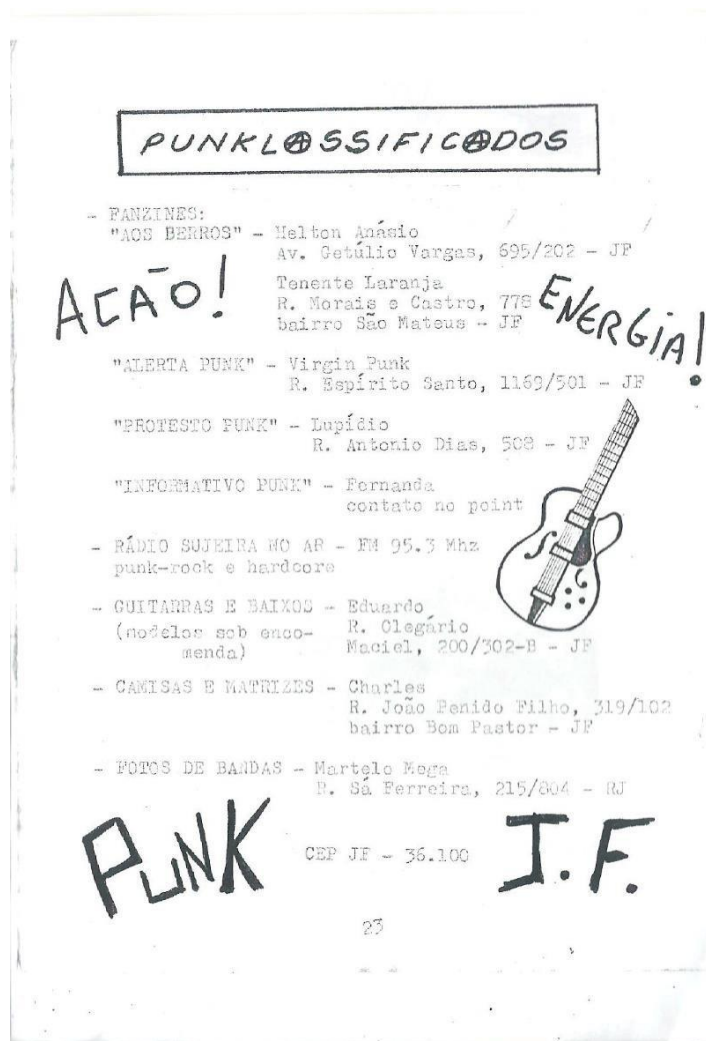 PUNKLASSIFICADOS
- FANZINES:
"AOS BERROS" - Helton Anásio
Av. Getúlio Vargas, 695/202 - JF
AÇÃO!
Tenente Laranja
R. Morais e Castro, 778
bairro São Mateus - JF
ENERGIA!
"ALERTA PUNK" - Virgin Punk
R. Espírito Santo, 1169/501 - JF
"PROTESTO PUNK" - Lupídio
R. Antonio Dias, 508 - JF
"INFORMATIVO PUNK" - Fernanda
contato no point
- RÁDIO SUJEIRA NO AR - FM 95.3 Mhz
punk-rock e hardcore
- GUITARRAS E BAIXOS - Eduardo
(modelos sob enco-
menda)
R. Olegário
Maciel, 200/302-B - JF
- CAMISAS E MATRIZES - Charles
R. João Penido Filho, 319/102
bairro Bom Pastor - JF
- FOTOS DE BANDAS - Martelo Mega
R. Sá Ferreira, 215/804 - RJ
PUNK
CEP JF - 36.100
J.F.
23